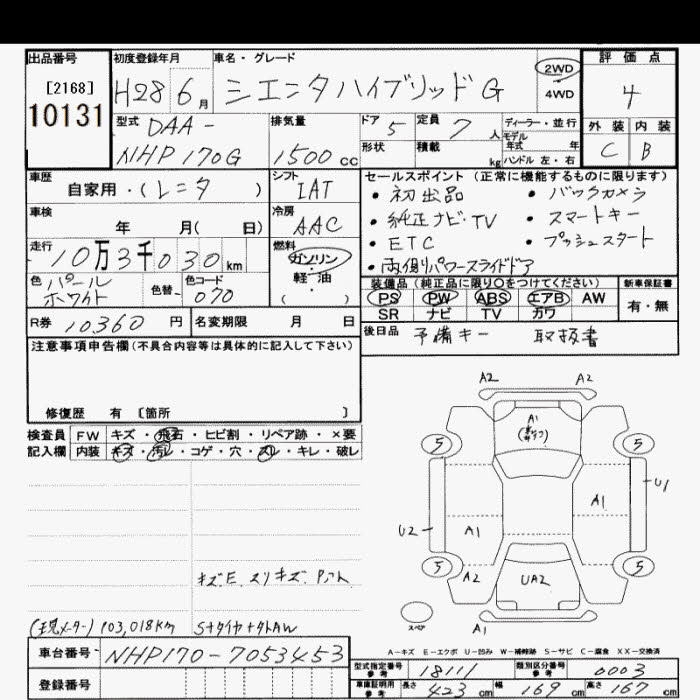 出品番号
[2168]
10131
初度登録年月
H28 6月
車名・グレード
シエンタハイブリッドG
2WD
4WD
評価点
4
外装 内装
C B
型式 DAA-
NHP170G
排気量
1500cc
ドア 5
形状
定員 7人
積載 kg
ディーラー・並行
モデル
年式 年
ハンドル 左・右
車歴
自家用・(レンタ )
シフト
IAT
車検
年 月( 日)
冷房
AAC
走行
10万3千030km
燃料
ガソリン・
軽・油
・( )
色 パール
ホワイト
色替
色コード
070
R券 10360 円
名変期限 月 日
セールスポイント (正常に機能するものに限ります)
・初出品 ・バックカメラ
・純正ナビ・TV ・スマートキー
・ETC ・プッシュスタート
・両側パワースライドドア
装備品(純正品に限り○をつけてください)
PS PW ABS エアB AW
SR ナビ TV カワ
新車保証書
有・無
後日品 予備キー 取扱書
注意事項申告欄(不具合内容等は具体的に記入して下さい)
修復歴 有 〔箇所 〕
検査員
記入欄
FW キズ・飛石・ヒビ割・リペア跡・×要
内装 キズ・汚レ・コゲ・穴・スレ・キレ・破レ
キズE スリキズ
(現メーター) 103,018Km
S+タイヤ+外AW
A2 A2
A1
5 5
U1
A1
U2 A1
5 5
A2 UA2
スペア
A1
A-キズ E-エクボ U-凹み W-補修跡 S-サビ C-腐食 XX-交換済
車台番号 NHP170-7053453
登録番号
型式指定番号
参考
18111
類別区分番号
参考
0003
車庫証明用
参考
長さ 423cm 幅 169cm 高さ 167cm